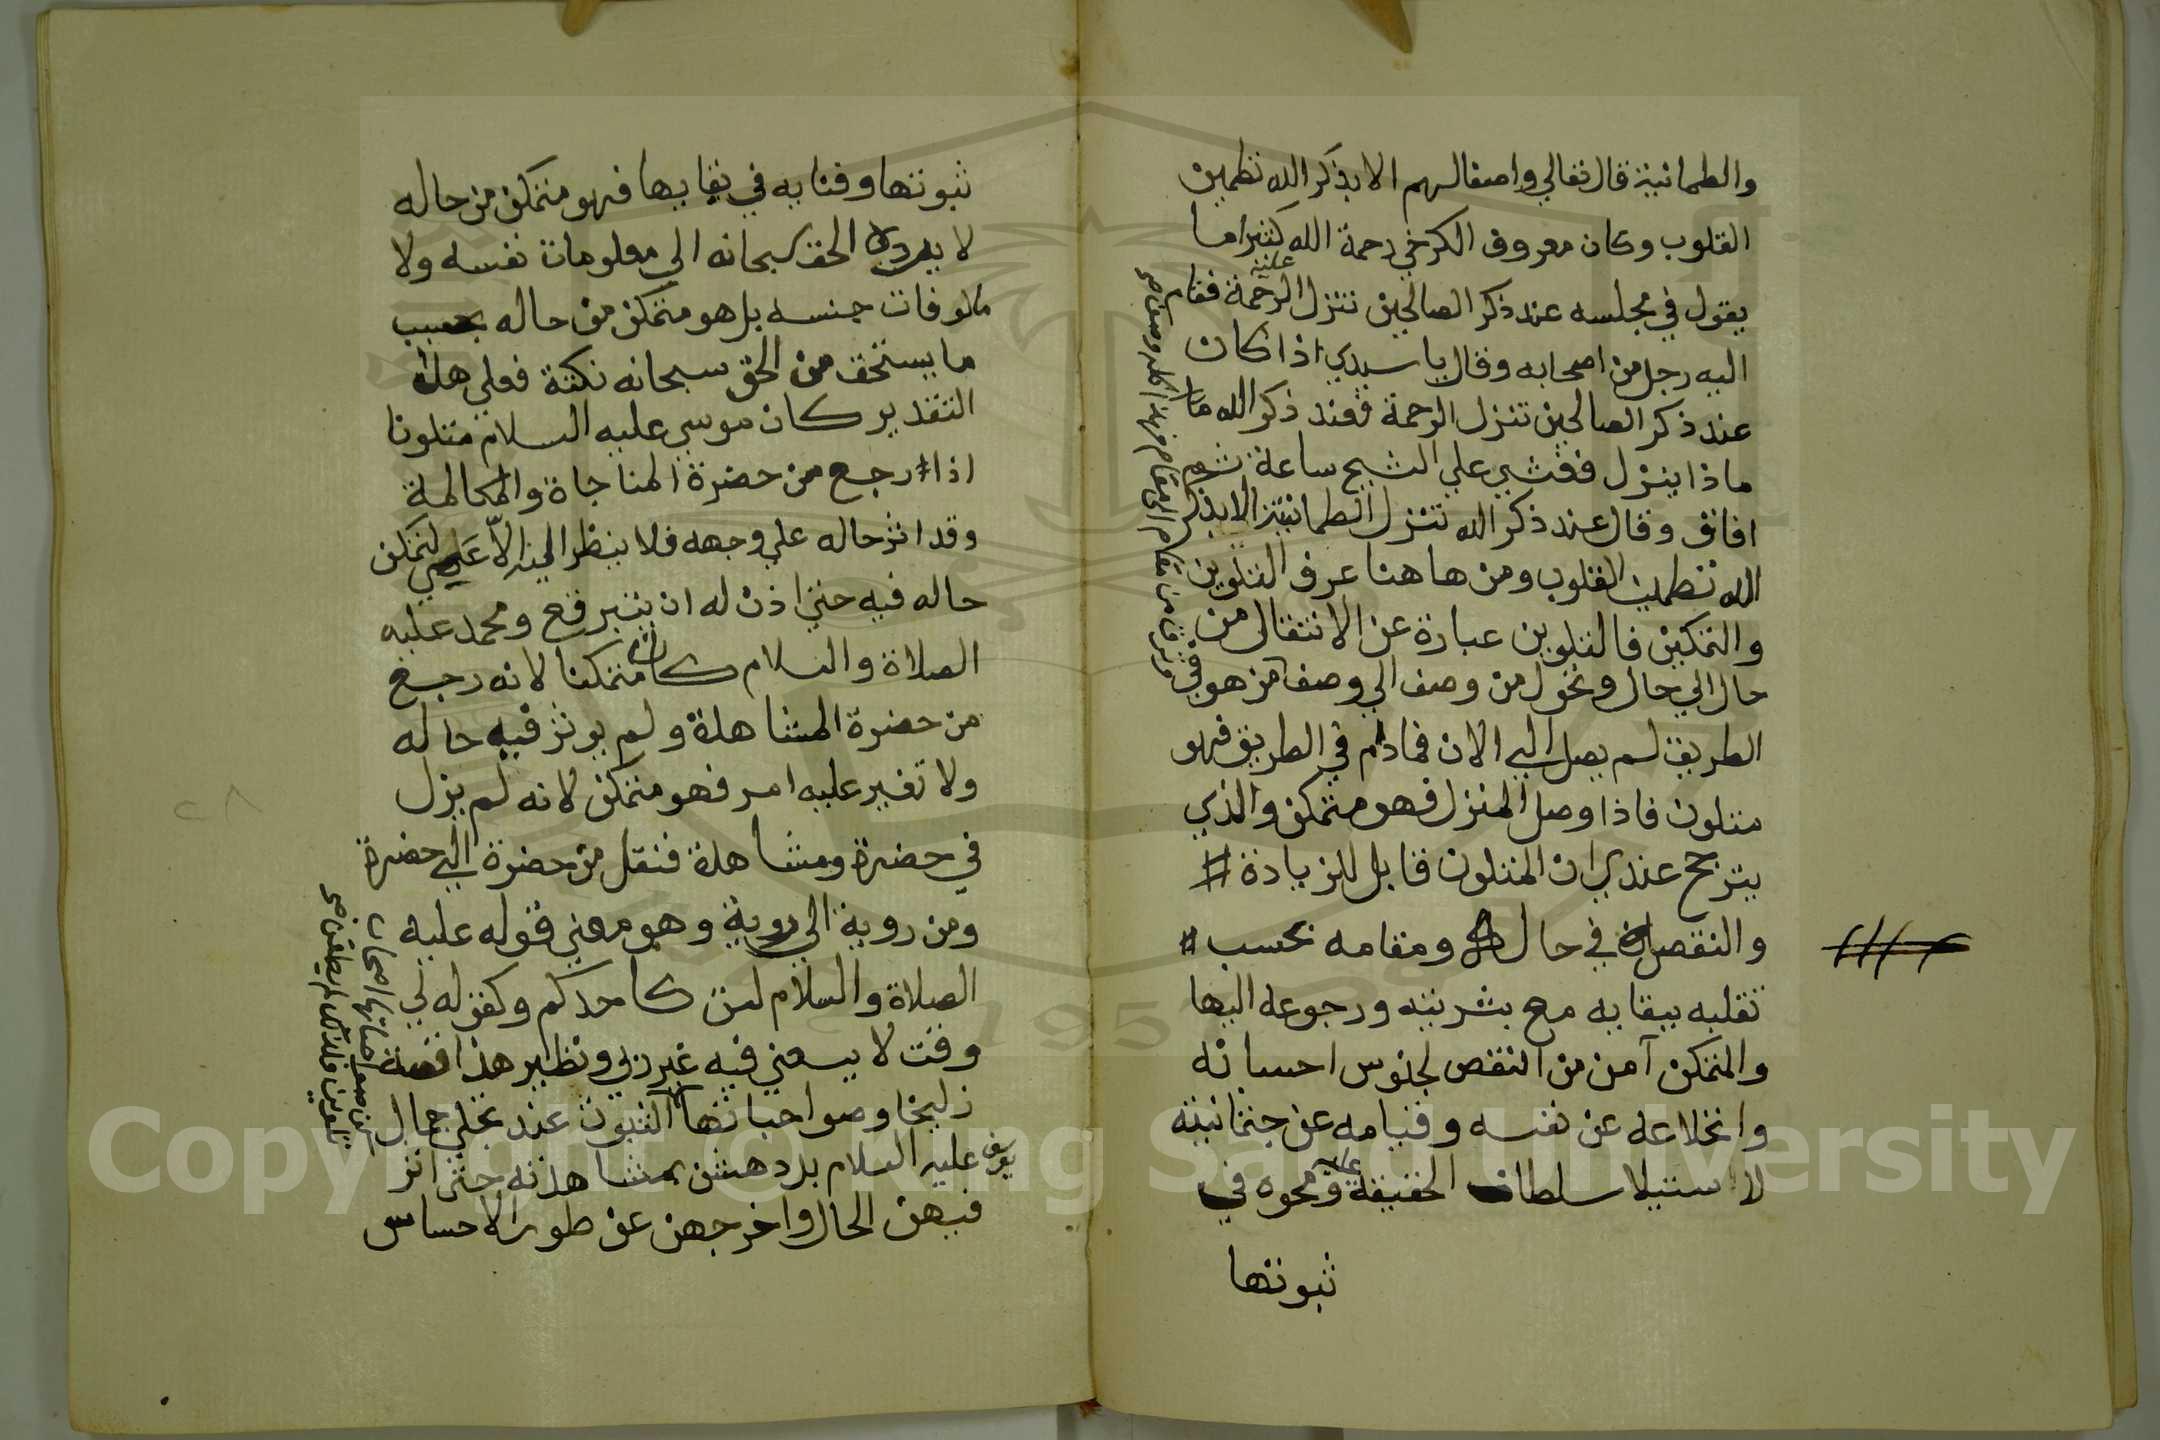 والطمانينة قال تعالي واصفالهم الا بذكر الله تطمين
القلوب وكان معروف الكرخي رحمة الله كثيرا ما
عليه
يقول في مجلسه عند ذكر الصالحين تتنزل الرحمة فقام
اليه رجل من اصحابه وقال يا سيدي اذا كان
عند ذكر الصالحين تتنزل الرحمة فعند ذكر الله
ماذا ينزل فغشي علي الشيخ ساعة ثم
افاق وقال عند ذكر الله تتنزل الطمانينة الا بذكر
الله تطمين القلوب ومن هاهنا عرف التلوين
والتمكين فالتلوين عبارة عن الانتقال من
حال الي حال وتحول من وصف الي وصف من هو في
الطريق لم يصل الي الان فمادام في الطريق فهو
متلون فاذا وصل المنزل فهو متمكن والذي
يترجح عندي ان المتلون قابل للزيادة
والنقصان في حال ومقامه بحسب
تقلبه ببقايه مع بشريته ورجوعه اليها
والمتمكن آمن من النقص لجلوس احسانه
وانخلاعه عن نفسه وقيامه عن جثمانيته
لاستيلا سلطان الحقيقة عليه ومحوه في
ثبوتها
ثبوتها وفنايه في بقايها فهو متمكن من حاله
لا يرده الحق سبحانه الي معلومات نفسه ولا
مالوفات جنسه بل هو متمكن من حاله بحسب
ما يستحق من الحق سبحانه نكتة فعلي هذا
التقدير كان موسي عليه السلام متلونا
اذا رجع من حضرة المناجاة والمكالمة
وقد اثر حاله علي وجهه فلا ينظر اليه الا عمي لتمكن
حاله فيه حتي اذن له ان يتبرقع ومحمد عليه
الصلاة والسلام كان متمكنا لانه رجع
من حضرة المشاهدة ولم يوثر فيه حاله
ولا تغير عليه امر فهو متمكن لانه لم يزل
في حضرة ومشاهدة فنقل من حضرة الي حضرة
ومن روية الي روية وهو معني قوله عليه
الصلاة والسلام لست كاحدكم وكقوله لي
وقت لا يسعني فيه غير ربي ونظير هذا قصة
زليخا وصواحباتها الثبوت عند تجلي جمال
يوسف عليه السلام بل دهشن بمشاهدته حتي اثر
فيهن الحال واخرجهن عن طور الاحساس